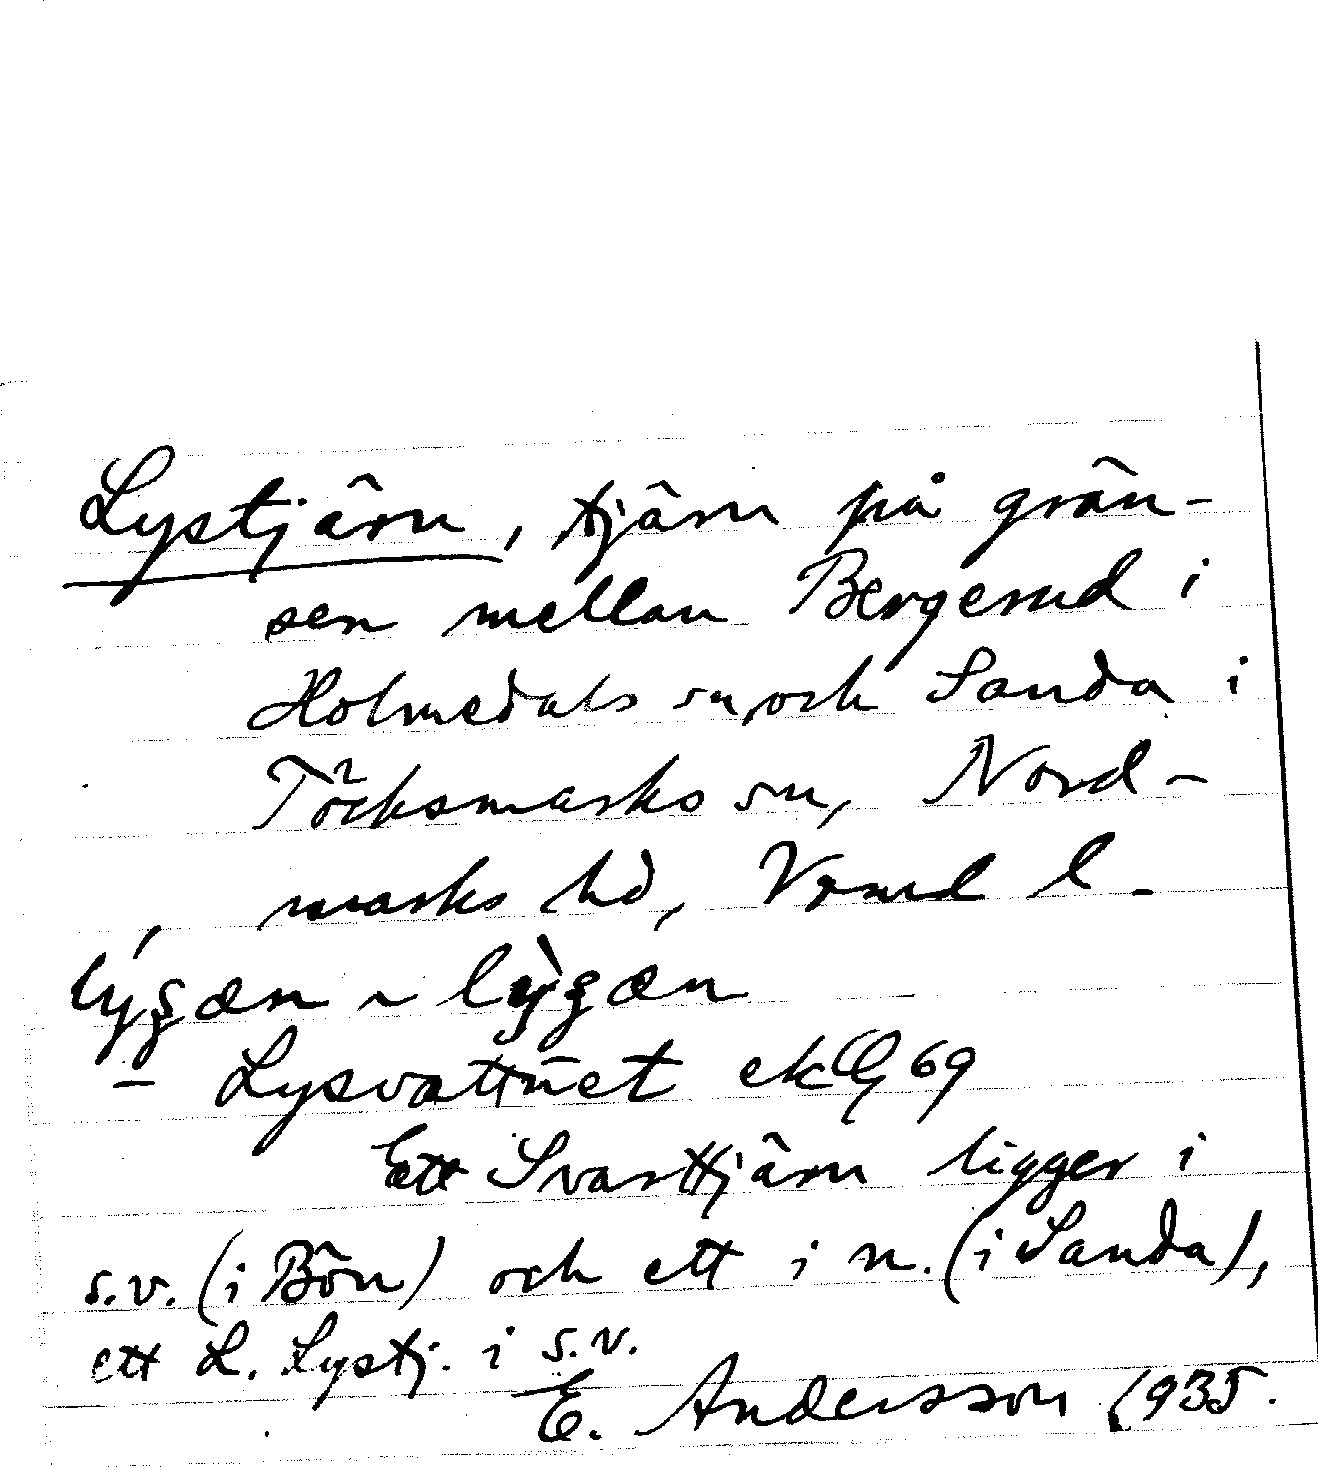 Lystjärn, tjärn på grän-
sen mellan Bergerud i
Holmedals sn, och Sanda i
Töcksmarks sn, Nord-
marks hd, Vrmld l -
– Lysvattnet ekG 69
Ett Svarttjärn ligger i
s.v. (i Bön) och ett i n. (i Sanda),
ett L. Lystj. i s.v.
E. Andersson 1935.